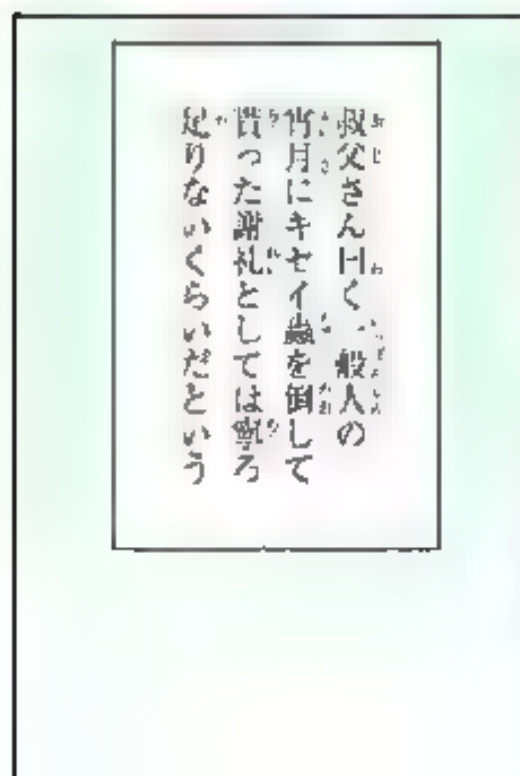 叔父さん曰く一般人の
宵月にキセイ蟲を倒して
貰った謝礼としては寧ろ
足りないくらいだという